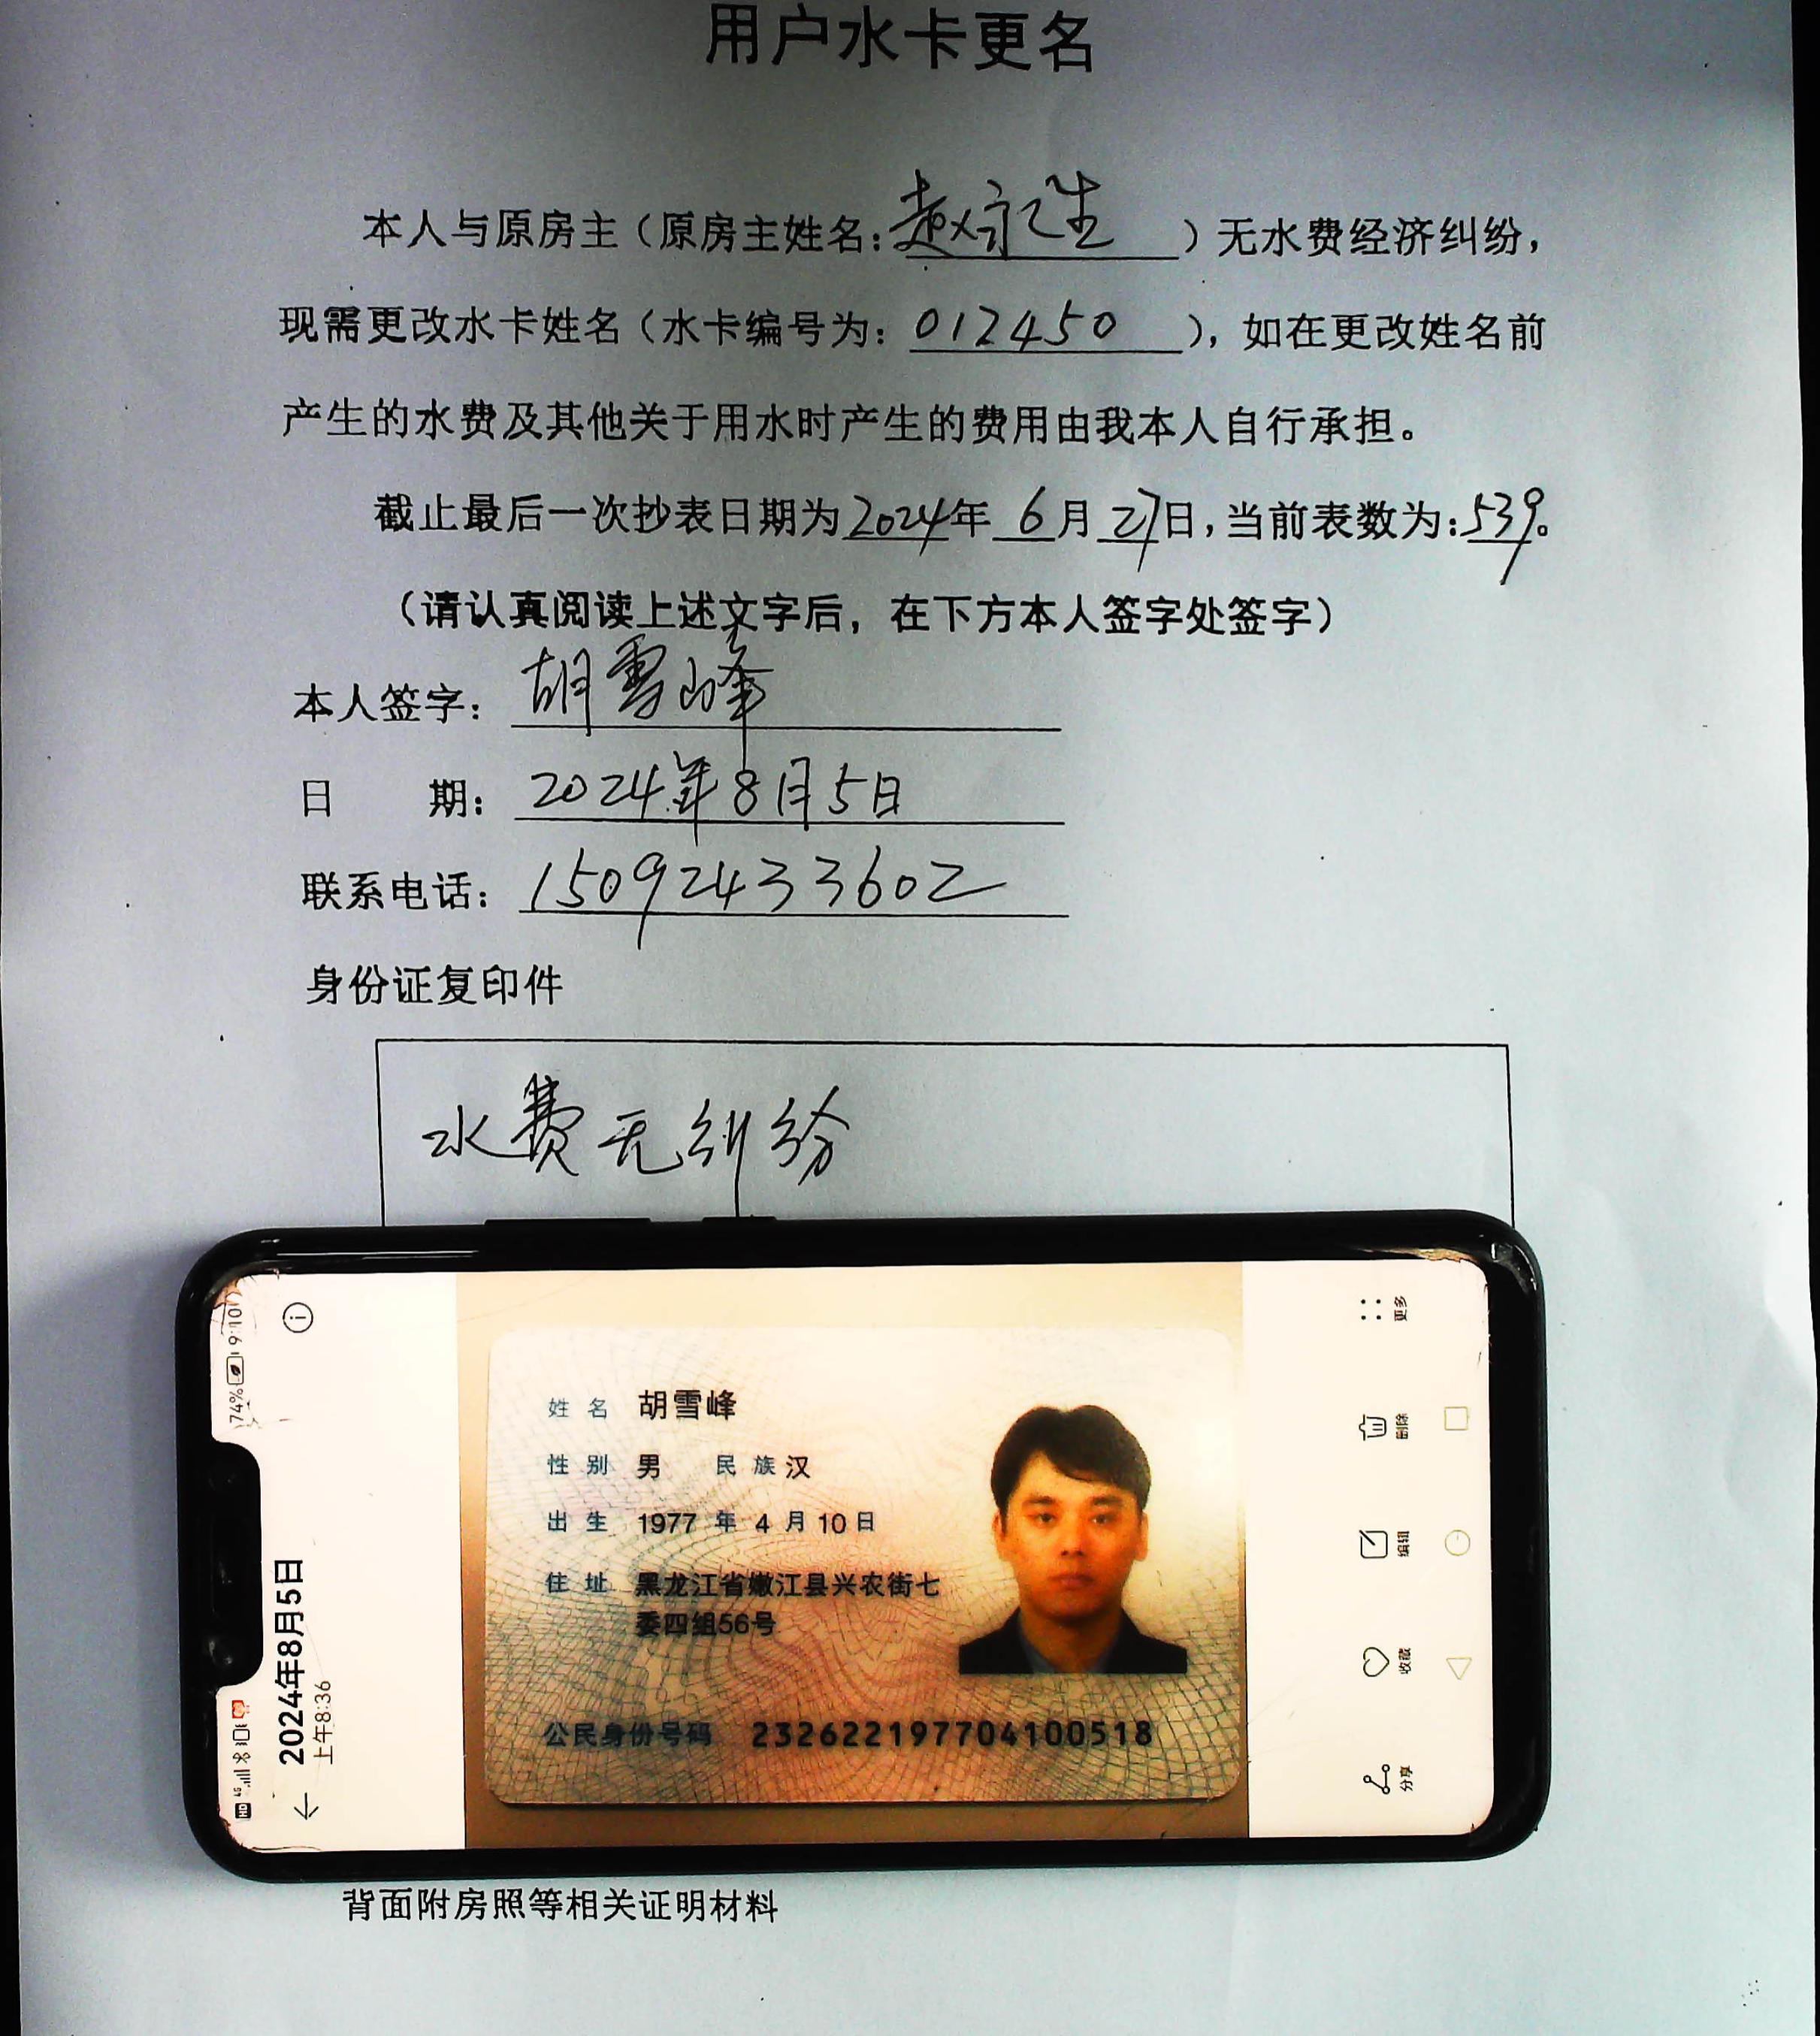 用户水卡更名
本人与原房主（原房主姓名：赵永生）无水费经济纠纷，
现需更改水卡姓名（水卡编号为：012450），如在更改姓名前
产生的水费及其他关于用水时产生的费用由我本人自行承担。
截止最后一次抄表日期为2024年6月27日，当前表数为：539。
（请认真阅读上述文字后，在下方本人签字处签字）
本人签字：胡雪峰
日 期：2024年8月5日
联系电话：15092433602
身份证复印件
水费无纠纷
74% 9:10
HD 4G
2024年8月5日
上午8:36
姓名 胡雪峰
性别 男 民族 汉
出生 1977 年 4 月 10 日
住址 黑龙江省嫩江县兴农街七
委四组56号
公民身份号码 232622197704100518
更多
删除
编辑
收藏
分享
背面附房照等相关证明材料